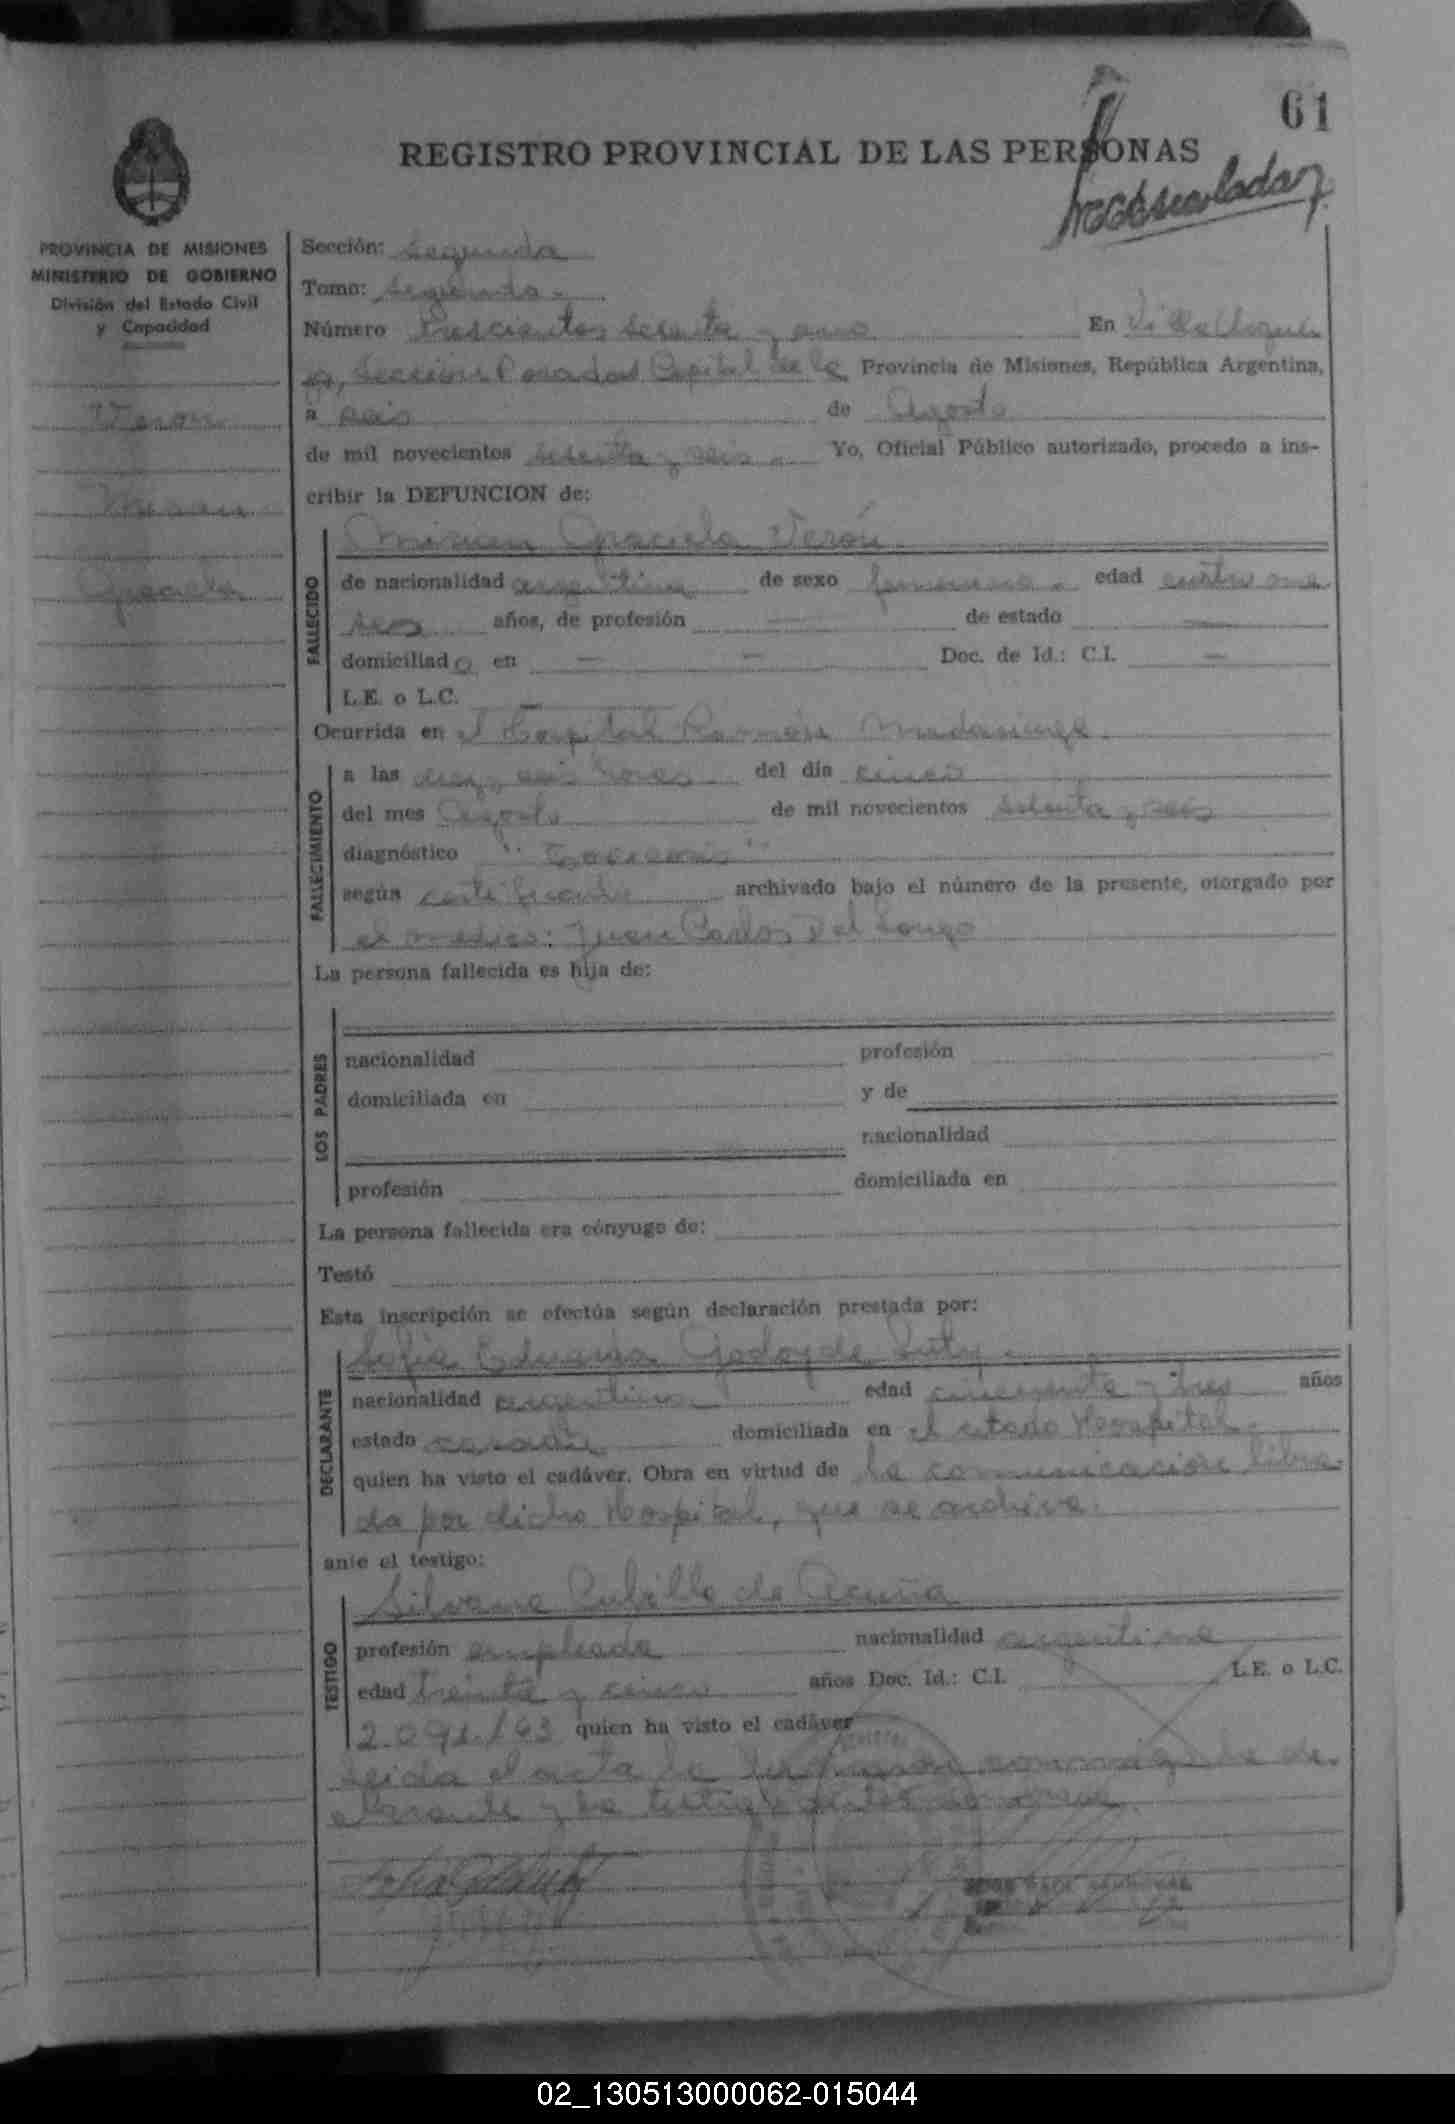 61
REGISTRO PROVINCIAL DE LAS PERSONAS
PROVINCIA DE MISIONES
MINISTERIO DE GOBIERNO
División del Estado Civil
y Capacidad
Veron
Miriam
Graciela
Sección: Segunda
Tomo: Segundo.
Número Trescientos sesenta y uno En Villa Urqui
za, Sección Posadas Capital de la Provincia de Misiones, República Argentina,
a seis de Agosto
de mil novecientos setenta y seis. Yo, Oficial Público autorizado, procedo a ins-
cribir la DEFUNCION de:
FALLECIDO
Miriam Graciela Verón
de nacionalidad argentina de sexo femenino. edad cuatro me
ses años, de profesión — de estado —
domiciliado en — — Doc. de Id.: C.I. —
L.E. o L.C. —
Ocurrida en el Hospital Ramón Madariaga.
FALLECIMIENTO
a las diez y seis horas del día cinco
del mes Agosto de mil novecientos setenta y seis
diagnóstico "Toxicosis"
según certificado archivado bajo el número de la presente, otorgado por
el médico: Juan Carlos Del
La persona fallecida es hija de:
LOS PADRES
nacionalidad profesión
domiciliada en y de
nacionalidad
profesión domiciliada en
La persona fallecida era cónyuge de:
Testó
Esta inscripción se efectúa según declaración prestada por:
DECLARANTE
Sofia Eduarda Godoy de
nacionalidad argentina edad cincuenta y tres años
estado casada domiciliada en el citado Hospital.
quien ha visto el cadáver. Obra en virtud de la comunicación libra
da por dicho Hospital, que se archiva.
ante el testigo:
TESTIGO
Silvana Cubilla de Acuña
profesión empleada nacionalidad argentina
edad treinta y cinco años Doc. Id.: C.I. L.E. o L.C.
2.091.163 quien ha visto el cadáver
Leida el acta la firman conmigo la de
clarante y la testigo antes
02_130513000062-015044